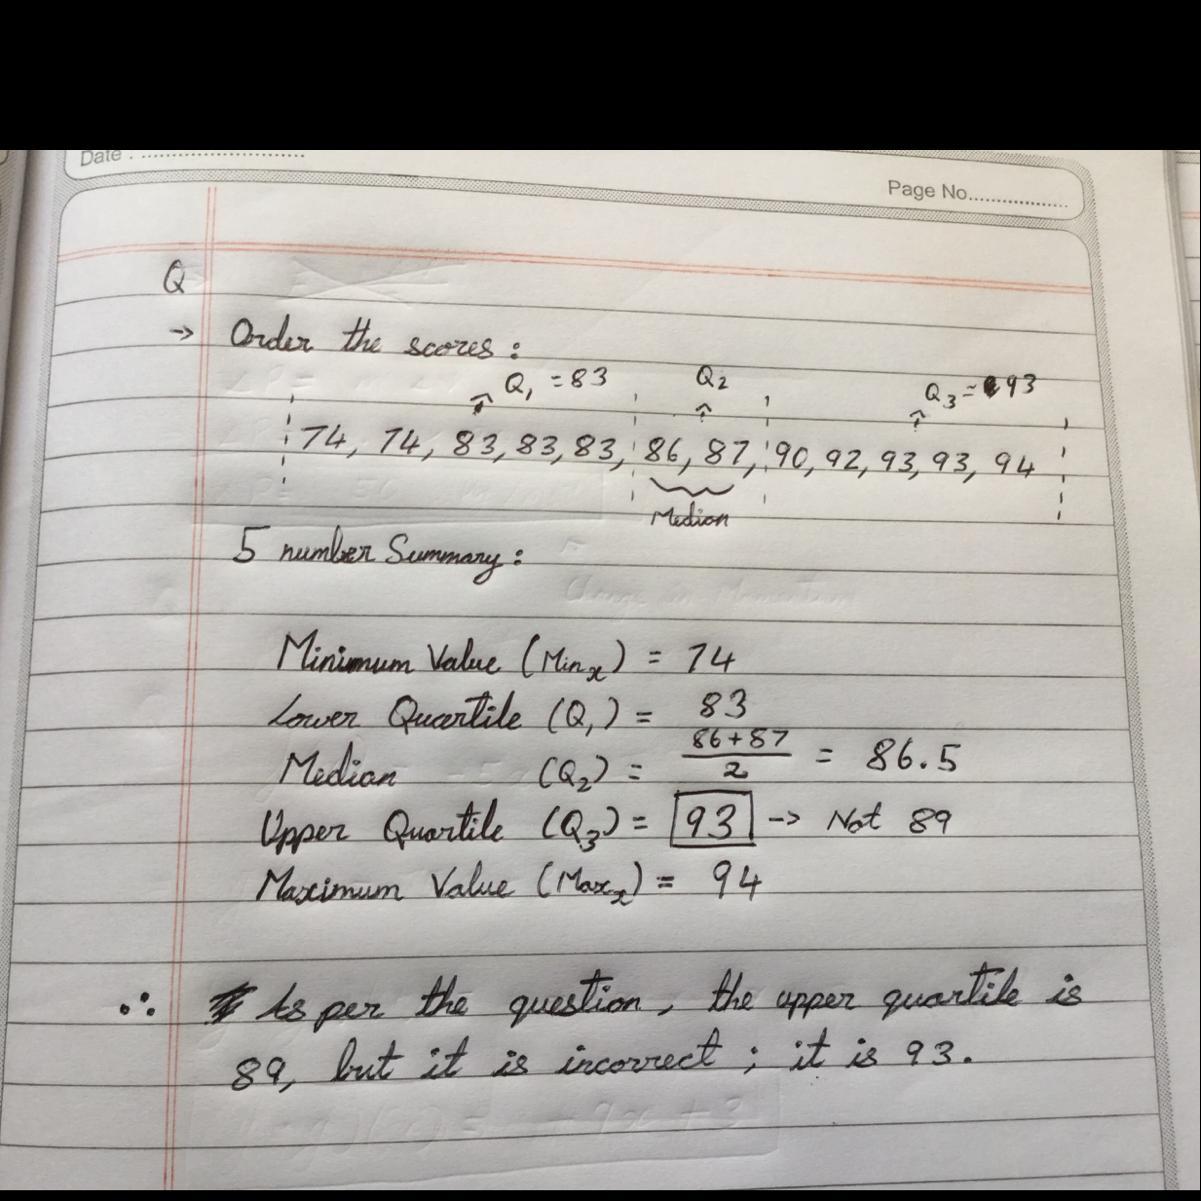 Date : ........................
Page No...................
Q
→ Order the scores :
Q₁ = 83 Q₂ Q₃ = 93
74, 74, 83, 83, 83, 86, 87, 90, 92, 93, 93, 94
Median
5 number Summary :
Minimum Value (Minₓ) = 74
Lower Quartile (Q₁) = 83
Median (Q₂) = 86+87/2 = 86.5
Upper Quartile (Q₃) = 93 → Not 89
Maximum Value (Maxₓ) = 94
∴ As per the question, the upper quartile is
89, but it is incorrect ; it is 93.